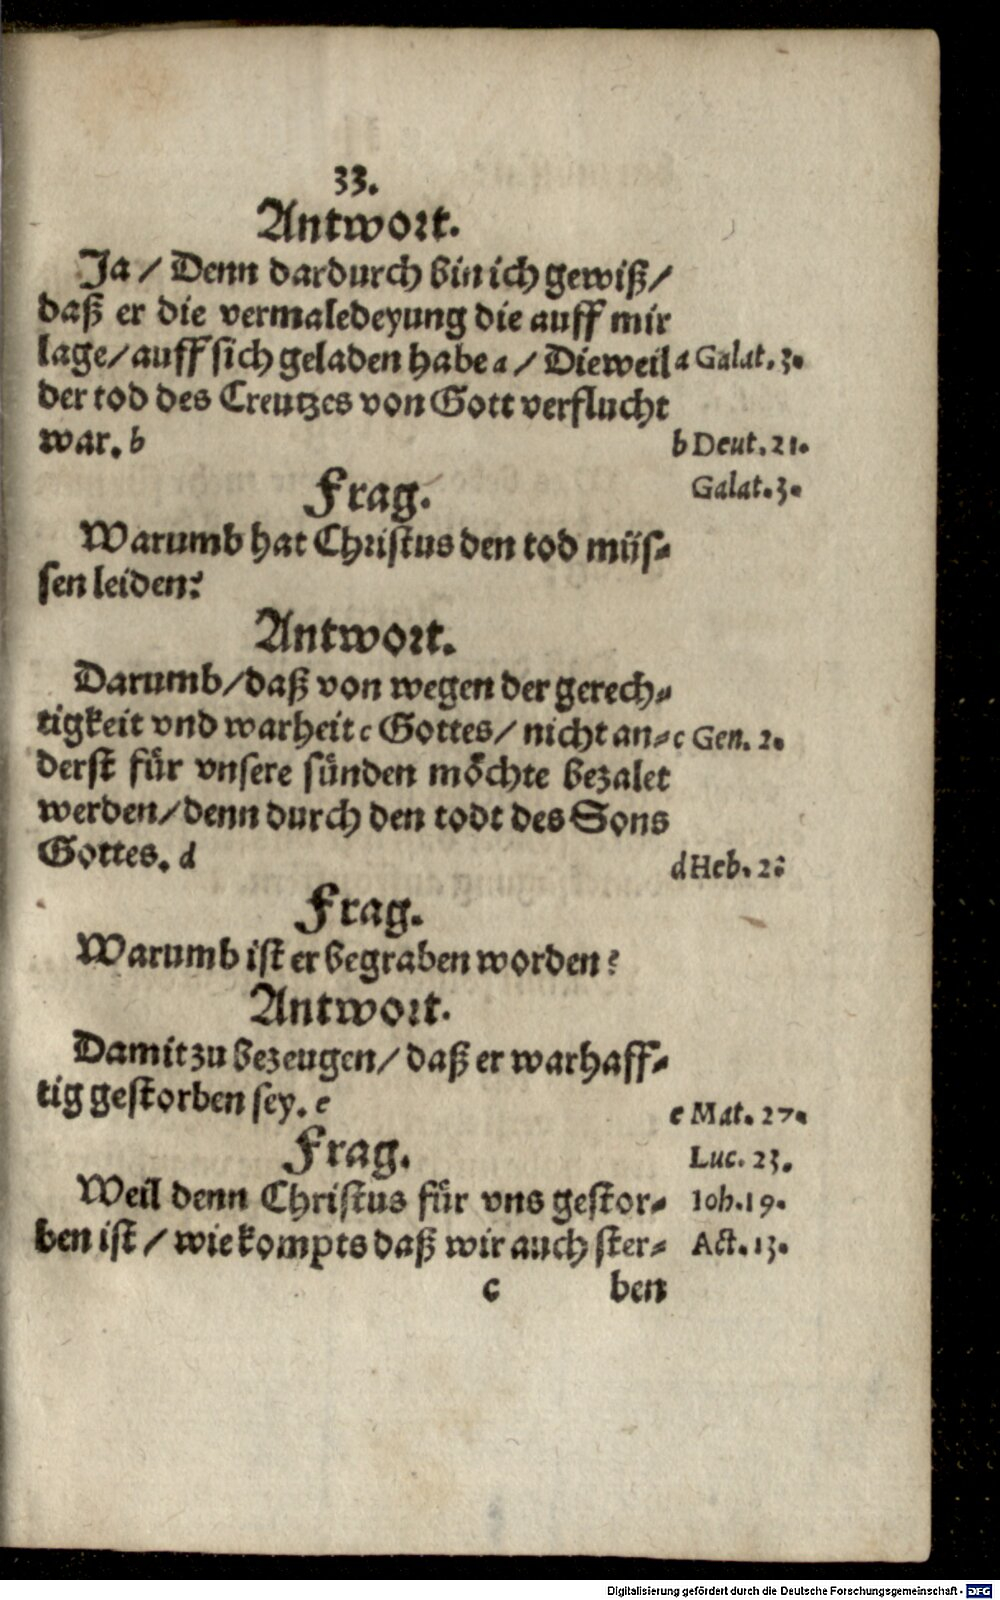 33.
Antwort.
Ja / Denn dardurch bin ich gewiß/
daß er die vermaledeyung die auff mir
lage/auff sich geladen habe a / Dieweil
a Galat. 3.
der tod des Creutzes von Gott verflucht
war. b
b Deut. 21.
Galat. 3.
Frag.
Warumb hat Christus den tod müs-
sen leiden?
Antwort.
Darumb/daß von wegen der gerech-
tigkeit vnd warheit c Gottes/ nicht an-
c Gen. 2.
derst für vnsere sünden möchte bezalet
werden/denn durch den todt des Sons
Gottes. d
d Heb. 2.
Frag.
Warumb ist er begraben worden?
Antwort.
Damit zu bezeugen/ daß er warhaff-
tig gestorben sey. e
e Mat. 27.
Frag.
Luc. 23.
Weil denn Christus für vns gestor-
Ioh. 19.
ben ist / wie kompts daß wir auch ster-
Act. 13.
c ben
Digitalisierung gefördert durch die Deutsche Forschungsgemeinschaft - DFG